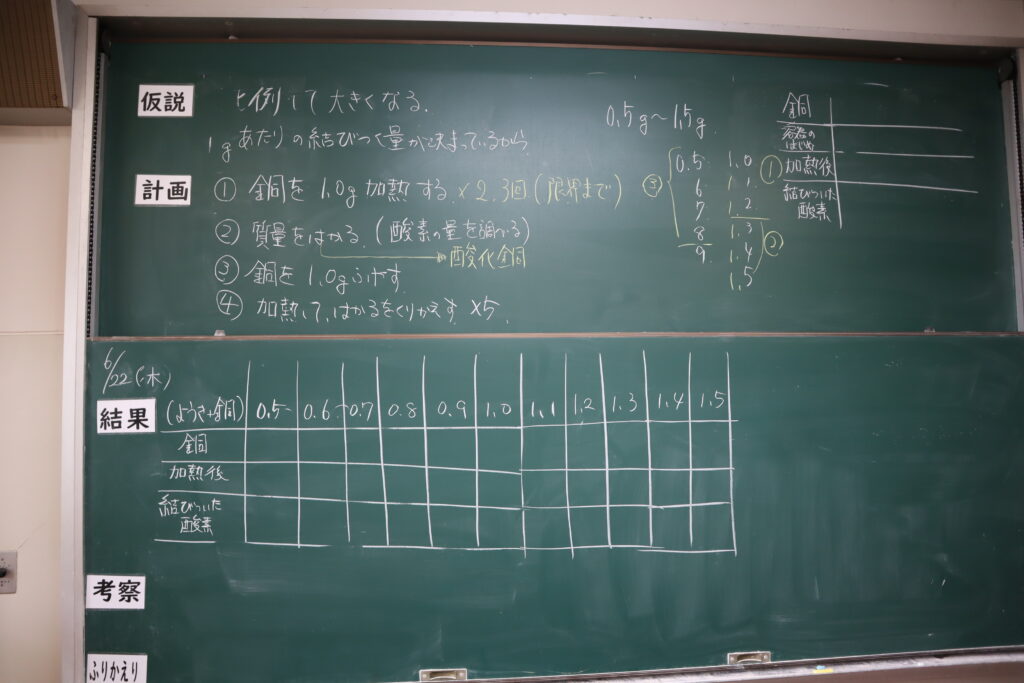 仮説
比例して大きくなる.
1gあたりの結びつく量が決まっているから
計画
① 銅を 1.0g 加熱する ×2.3回(限界まで)
② 質量をはかる.(酸素の量を調べる)
酸化銅
③ 銅を 1.0gふやす
④ 加熱して,はかるをくりかえす ×5.
0.5g~1.5g
③
0.5
6
7
8
9
1.0
1.1
1.2
1.3
1.4
1.5
②
①
銅
容器のはじめ
加熱後
結びついた
酸素
6/22(木)
結果
(ようき+銅) 0.5 0.6 0.7 0.8 0.9 1.0 1.1 1.2 1.3 1.4 1.5
銅
加熱後
結びついた
酸素
考察
ふりかえり